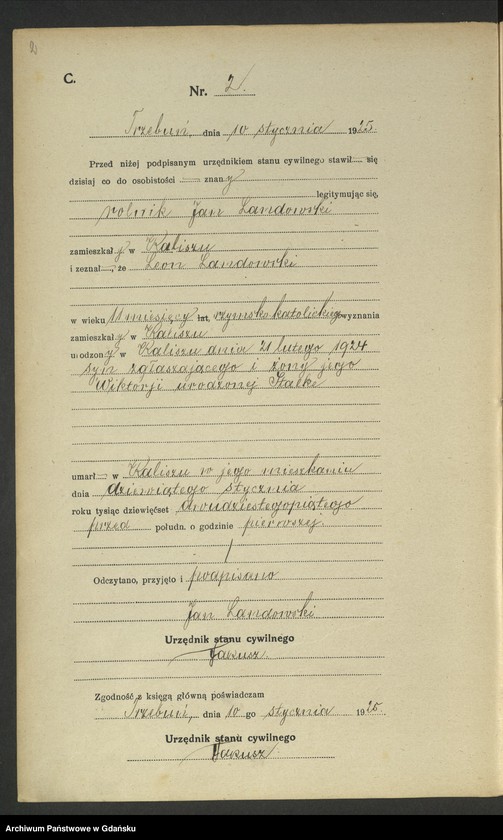 C.
Nr. 2.
Trzebuń, dnia 10 stycznia 1925.
Przed niżej podpisanym urzędnikiem stanu cywilnego stawił się
dzisiaj co do osobistości znany
legitymując się,
rolnik Jan Landowski
zamieszkały w Kaliszu
i zeznał, że Leon Landowski
w wieku 11 miesięcy lat, rzymsko katolickiego wyznania
zamieszkały w Kaliszu
urodzony w Kaliszu dnia 21 lutego 1924
syn zgłaszającego i żony jego
Wiktorji urodzonej Stalke
umarł w Kaliszu w jego mieszkaniu
dnia dziewiątego stycznia
roku tysiąc dziewięćset dwudziestegopiątego
przed połudn. o godzinie pierwszej.
Odczytano, przyjęto i podpisano
Jan Landowski
Urzędnik stanu cywilnego
Zgodność z księgą główną poświadczam
Trzebuń, dnia 10 go stycznia 1925.
Urzędnik stanu cywilnego
Archiwum Państwowe w Gdańsku